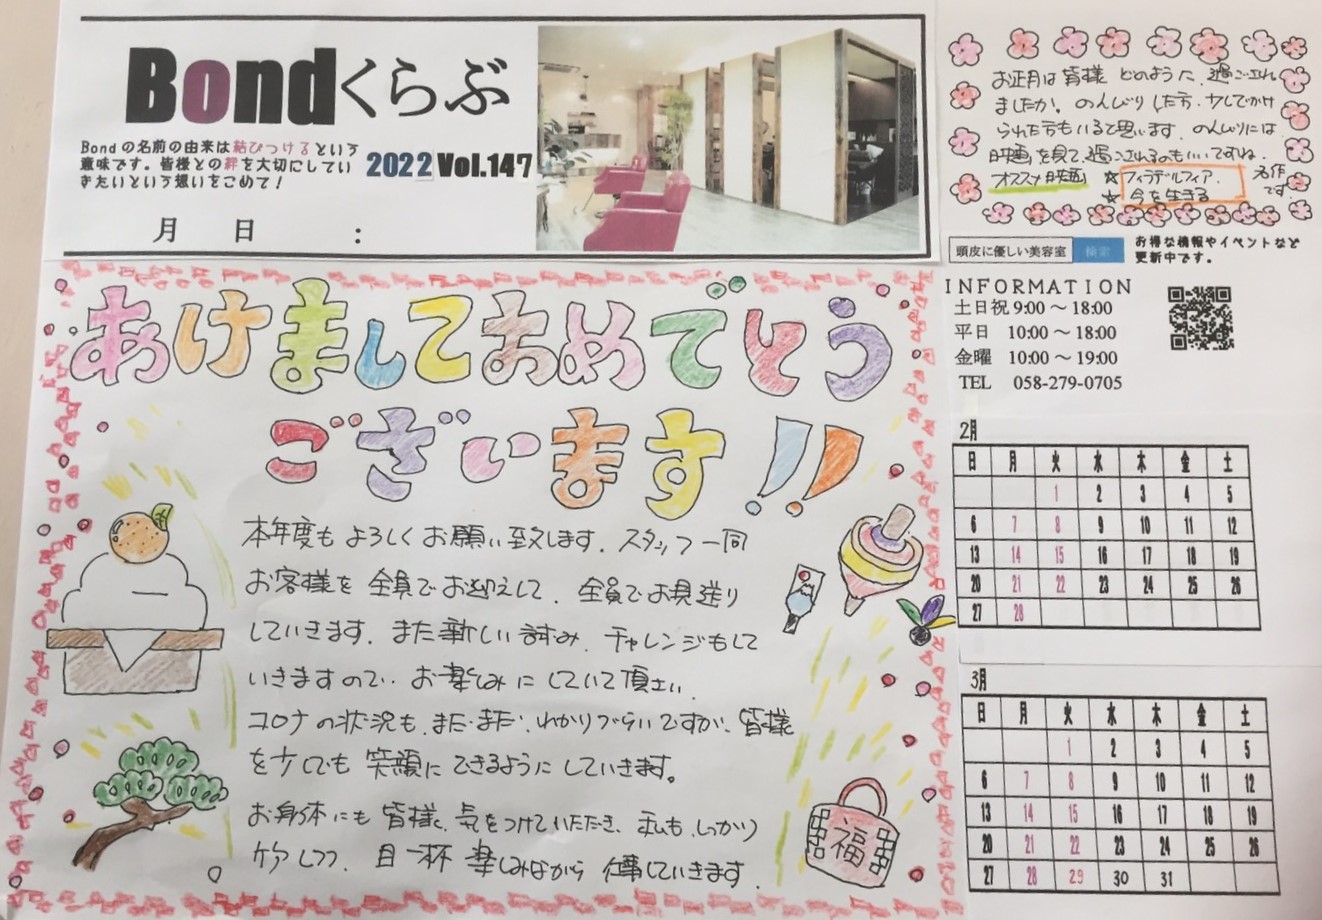 Bondくらぶ
Bondの名前の由来は結びつけるという
意味です。皆様との絆を大切にしてい
きたいという想いをこめて！
2022 Vol.147
月 日 :
お正月は皆様 どのように、過ごされ
ましたか。のんびりした方、少しでかけ
られた方もいると思います。のんびりには
映画を見て、過ごされるのもいいですね。
オススメ映画 ☆フィラデルフィア、
☆今を生きる
名作
です
頭皮に優しい美容室 検索
お得な情報やイベントなど
更新中です。
INFORMATION
土日祝 9:00 〜 18:00
平日 10:00 〜 18:00
金曜 10:00 〜 19:00
TEL 058-279-0705
あけましておめでとう
ございます!!
本年度も よろしく お願い致します。スタッフ一同
お客様を 全員でお迎えして、全員でお見送り
していきます。また新しい試み、チャレンジもして
いきますので、お楽しみに していて頂さい。
コロナの状況も、まだまだ、わかりづらいですが、皆様
を少しでも 笑顔に できるように していきます。
お身体にも 皆様、気をつけていただき、私も、しっかり
ケアしつつ、目一杯 楽しみながら 仕事していきます。
福
2月
日 月 火 水 木 金 土
1 2 3 4 5
6 7 8 9 10 11 12
13 14 15 16 17 18 19
20 21 22 23 24 25 26
27 28
3月
日 月 火 水 木 金 土
1 2 3 4 5
6 7 8 9 10 11 12
13 14 15 16 17 18 19
20 21 22 23 24 25 26
27 28 29 30 31